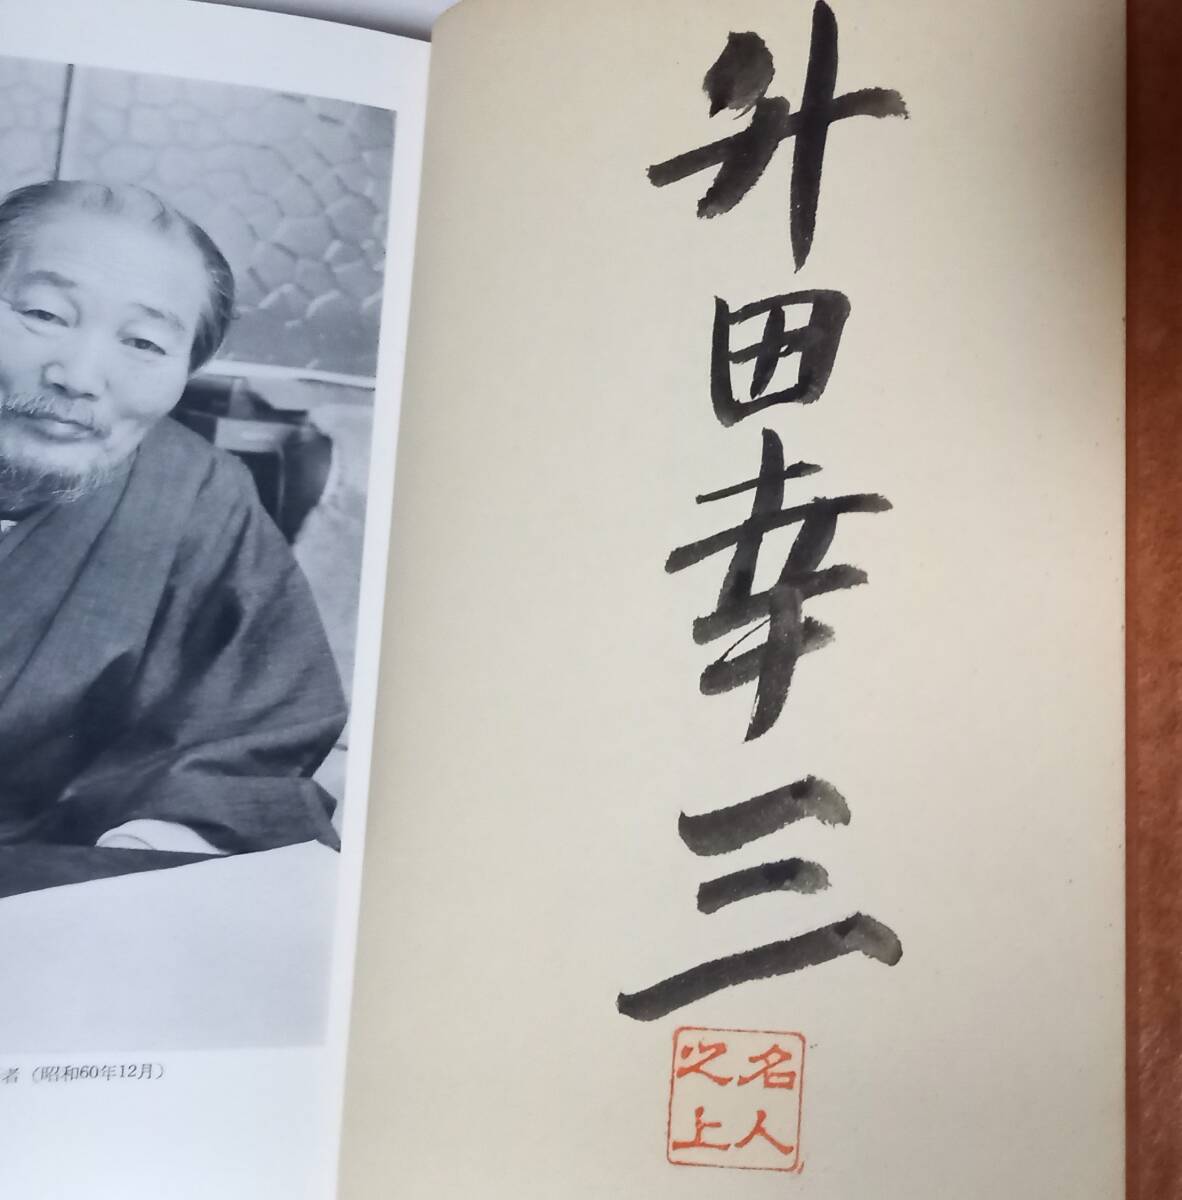 升田幸三
名人
之上
者（昭和60年12月）